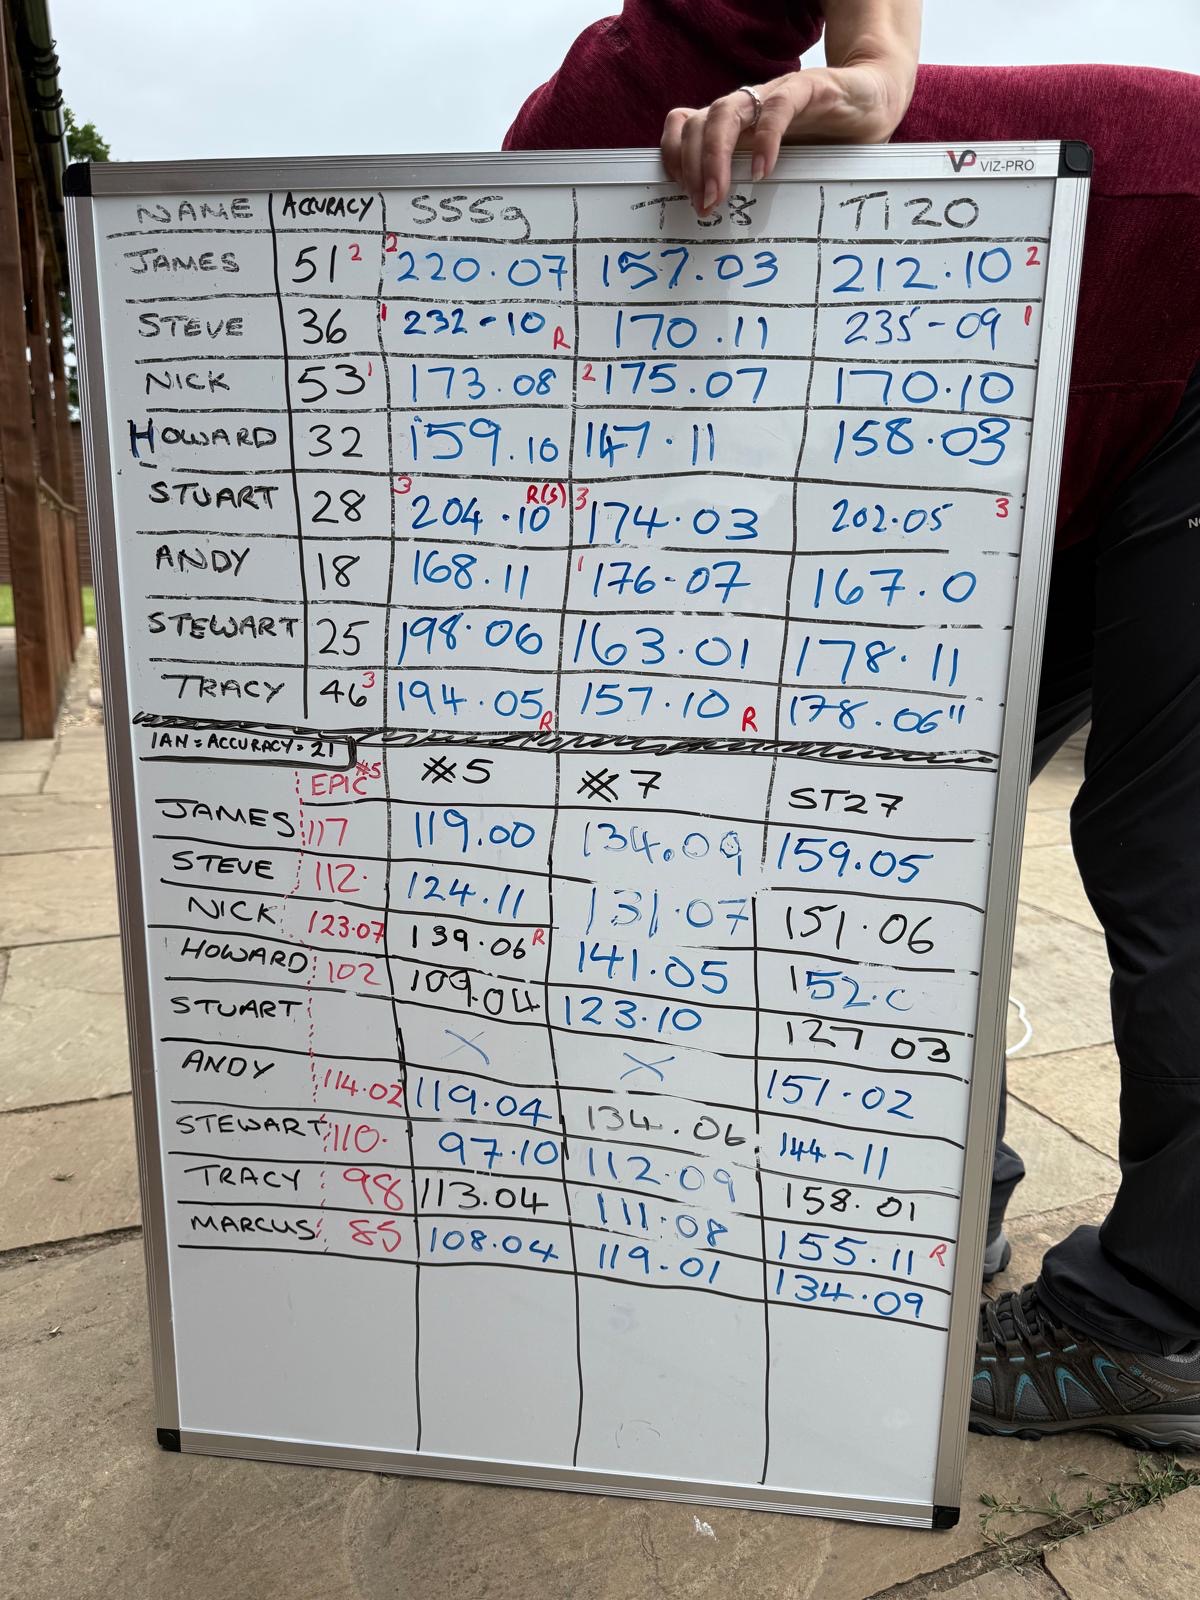 VP VIZ-PRO
NAME ACCURACY S55g T38 T120
JAMES 51 2 2 220.07 157.03 212.10 2
STEVE 36 1 232-10 R 170.11 235-09 1
NICK 53 1 173.08 2 175.07 170.10
HOWARD 32 159.10 147.11 158.03
STUART 28 3 204.10 R(S) 3 174.03 202.05 3
ANDY 18 168.11 1 176-07 167.0
STEWART 25 198.06 163.01 178.11
TRACY 46 3 194.05 R 157.10 R 178.06"
IAN = ACCURACY = 21
EPIC #5 #5 # 7 ST27
JAMES 117 119.00 134.09 159.05
STEVE 112. 124.11 131.07 151.06
NICK 123.07 139.06 R 141.05 152.
HOWARD 102 109.04 123.10 127 03
STUART X X 151.02
ANDY 114.02 119.04 134.06 144-11
STEWART 110. 97.10 112.09 158.01
TRACY 98 113.04 111.08 155.11 R
MARCUS 85 108.04 119.01 134.09
karrimor